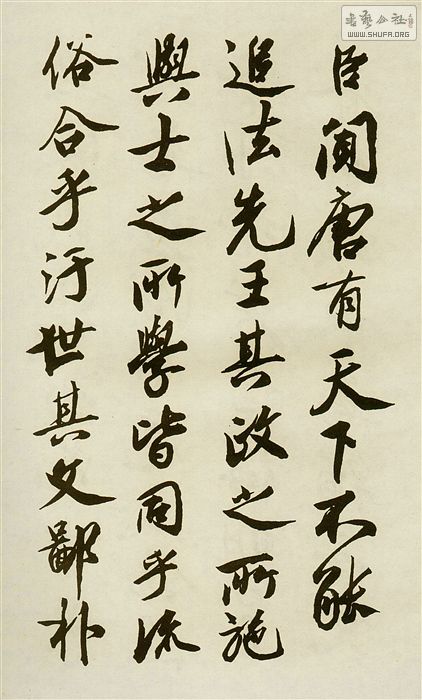 臣聞唐有天下不能
追法先王其政之所施
興士之所學皆同乎流
俗合乎汙世其文鄙朴
書藝公社
WWW.SHUFA.ORG